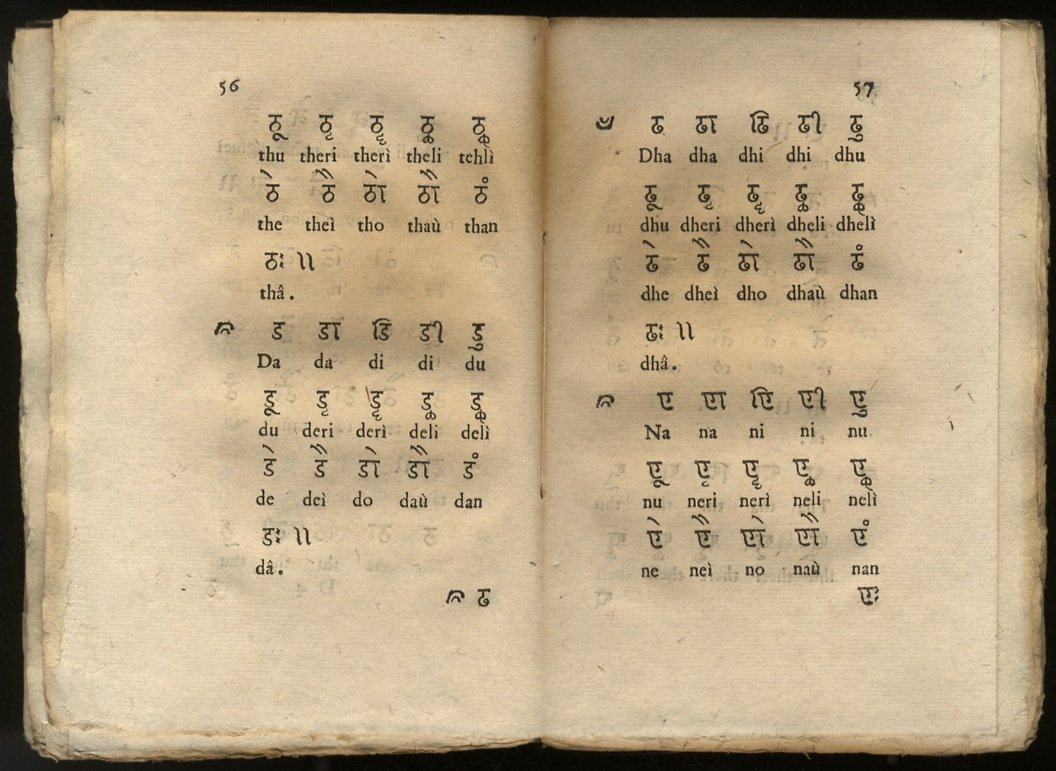 56
ठू ठृ ठॄ ठॢ ठॣ
thu theri therì theli tehlì
ठे ठै ठो ठौ ठं
the theì tho thaù than
ठः ॥
thâ.
ड डा डि डी डु
Da da di di du
डू डृ डॄ डॢ डॣ
du deri derì deli delì
डे डै डो डौ डं
de deì do daù dan
डः ॥
dâ.
ढ
57
ढ ढा ढि ढी ढु
Dha dha dhi dhi dhu
ढू ढृ ढॄ ढॢ ढॣ
dhu dheri dherì dheli dhelì
ढे ढै ढो ढौ ढं
dhe dheì dho dhaù dhan
ढः ॥
dhâ.
ण णा णि णी णु
Na na ni ni nu
णू णृ णॄ णॢ णॣ
nu neri nerì neli nelì
णे णै णो णौ णं
ne neì no naù nan
णः